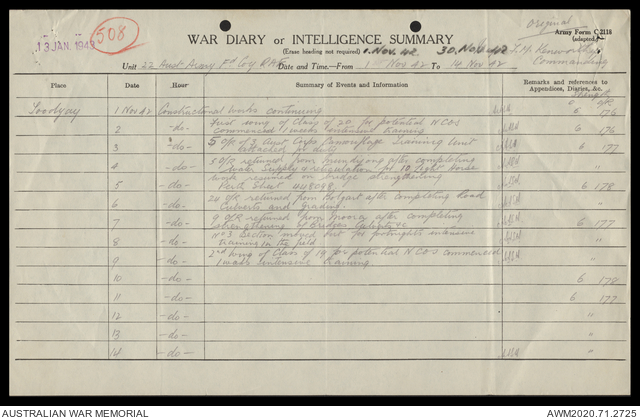 508
13 JAN. 1943
WAR DIARY or INTELLIGENCE SUMMARY
(Erase heading not required) 1. Nov. 42. 30. Nov. 42
original
Army Form C.2118
(adapted)
Commanding
Unit 22 Aust Army Fd Coy RAE Date and Time.—From 1 Nov 42 To 14 Nov 42
Place Date Hour Summary of Events and Information Remarks and references to Appendices, Diaries, &c.
Strength
O O/R
Toodyay 1 Nov 42 Constructional works continuing 6 176
2 -do- First wing of Class of 20 for potential NCOS
commenced 1 weeks intensive training 6 176
3 -do- 5 O/R of 3 Aust Corps Camouflage Training Unit
attached for duty 6 177
4 -do- 5 O/R returned from after completing
Water Supply & reticulation for 10 Light Horse "
5 -do- Work resumed on bridge strengthening
Perth Sheet 448098. 6 178
6 -do- 24 O/R returned from Bolgart after completing Road
Culverts and grading. "
7 -do- 9 O/R returned from Moora after completing
strengthening of bridges culverts &c 6 177
8 -do- No 3 Section moved out for fortnights intensive
training in the field "
9 -do- 2nd wing of Class of 19 for potential NCOS commenced
1 weeks intensive training "
10 -do- 6 178
11 -do- 6 177
12 -do- "
13 -do- "
14 -do- "
AUSTRALIAN WAR MEMORIAL
AWM2020.71.2725